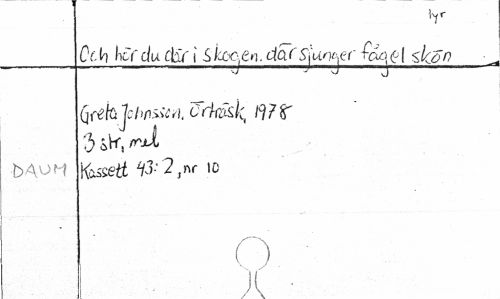 lyr
Och hör du där i skogen. där sjunger fågel skön
Greta Johnsson, Örträsk, 1978
3 str, mel
DAUM Kassett 43:2, nr 10